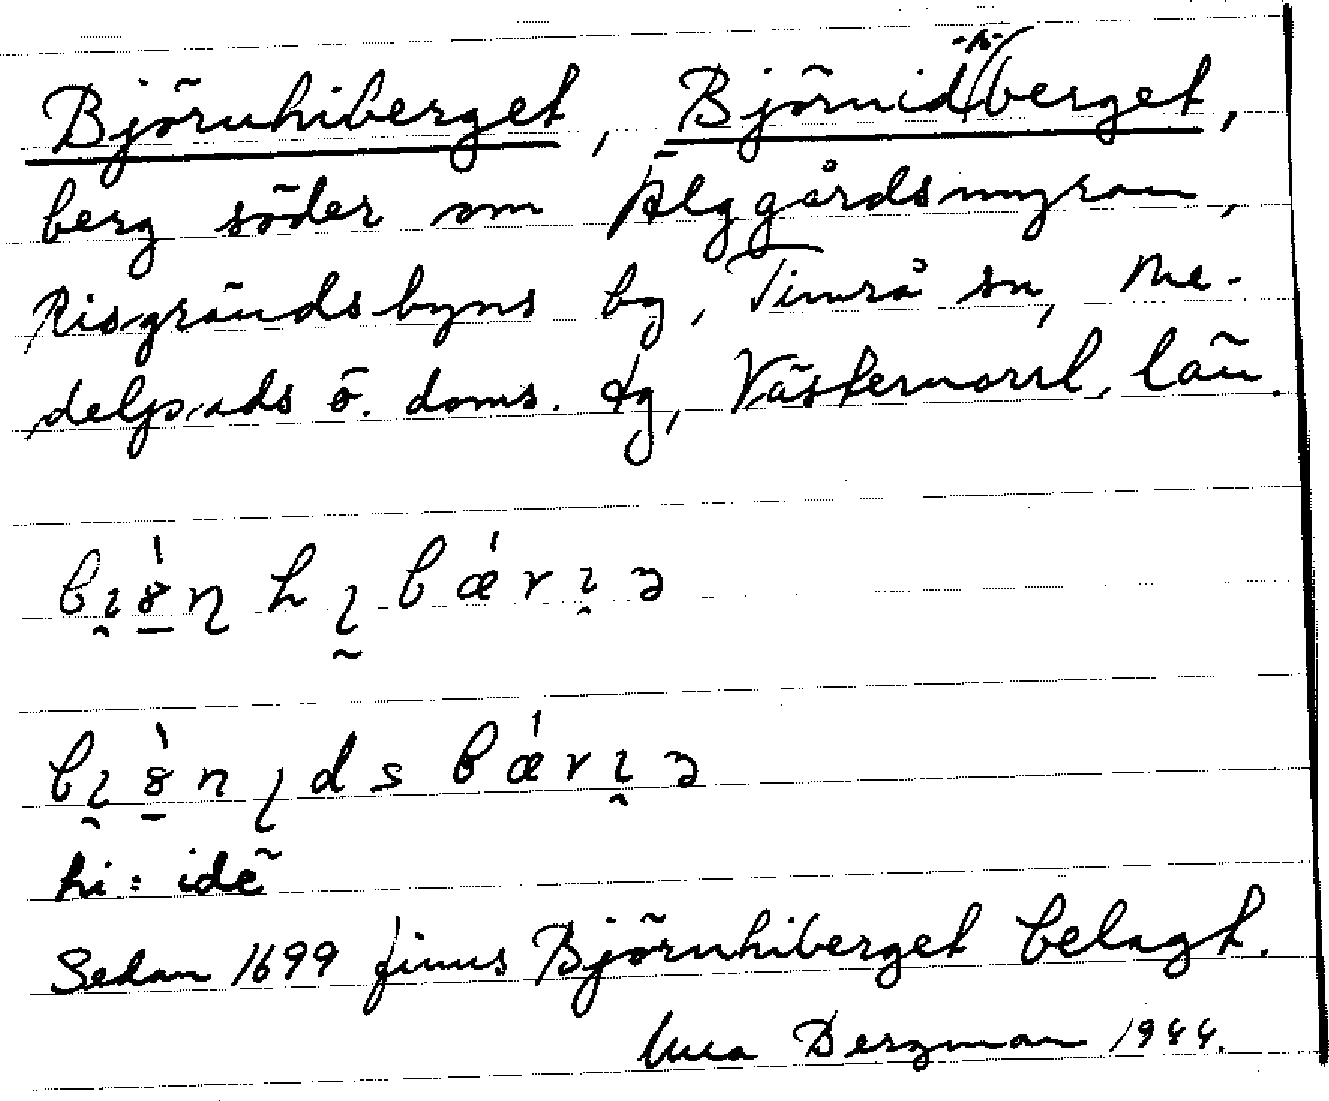 Björnhiberget, Björnid(-s-)berget,
berg söder om Älggårdsmyran,
Risgrändsbyns by, Timrå sn, Me-
delpads ö. doms. dg, Västernorrl. län.
hi: ide
Sedan 1699 finns Björnhiberget belagt.
Bergman 1944.